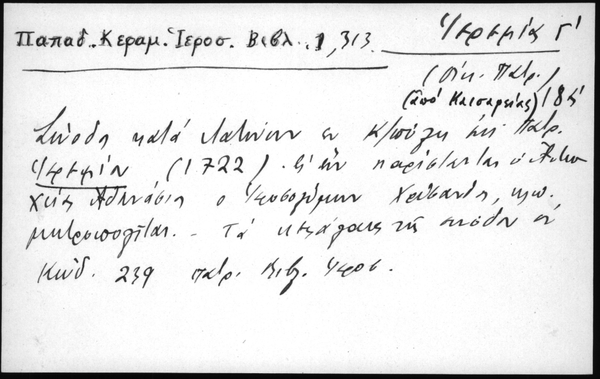 Παπαδ. Κεραμ. Ἱεροσ. Βιβλ. 1, 313.
Ἱερεμίας Γ'
(Οἰκ. Πατρ.)
(ἀπό Καισαρείας) 18
Σύνοδος κατά Λατίνων ἐν Κ/πόλει ἐπί Πατρ.
Ἱερεμίου (1722). Εἰς ἥν παρίσταντας ὁ Ἀντιο
χείας Ἀθανάσιος ὁ Ἱεροσολύμων Χρύσανθος,
μητροπολίται. - Τά τῆς συνόδου ἐν
Κώδ. 239 πατρ. Βιβλ. Ἱεροσ.